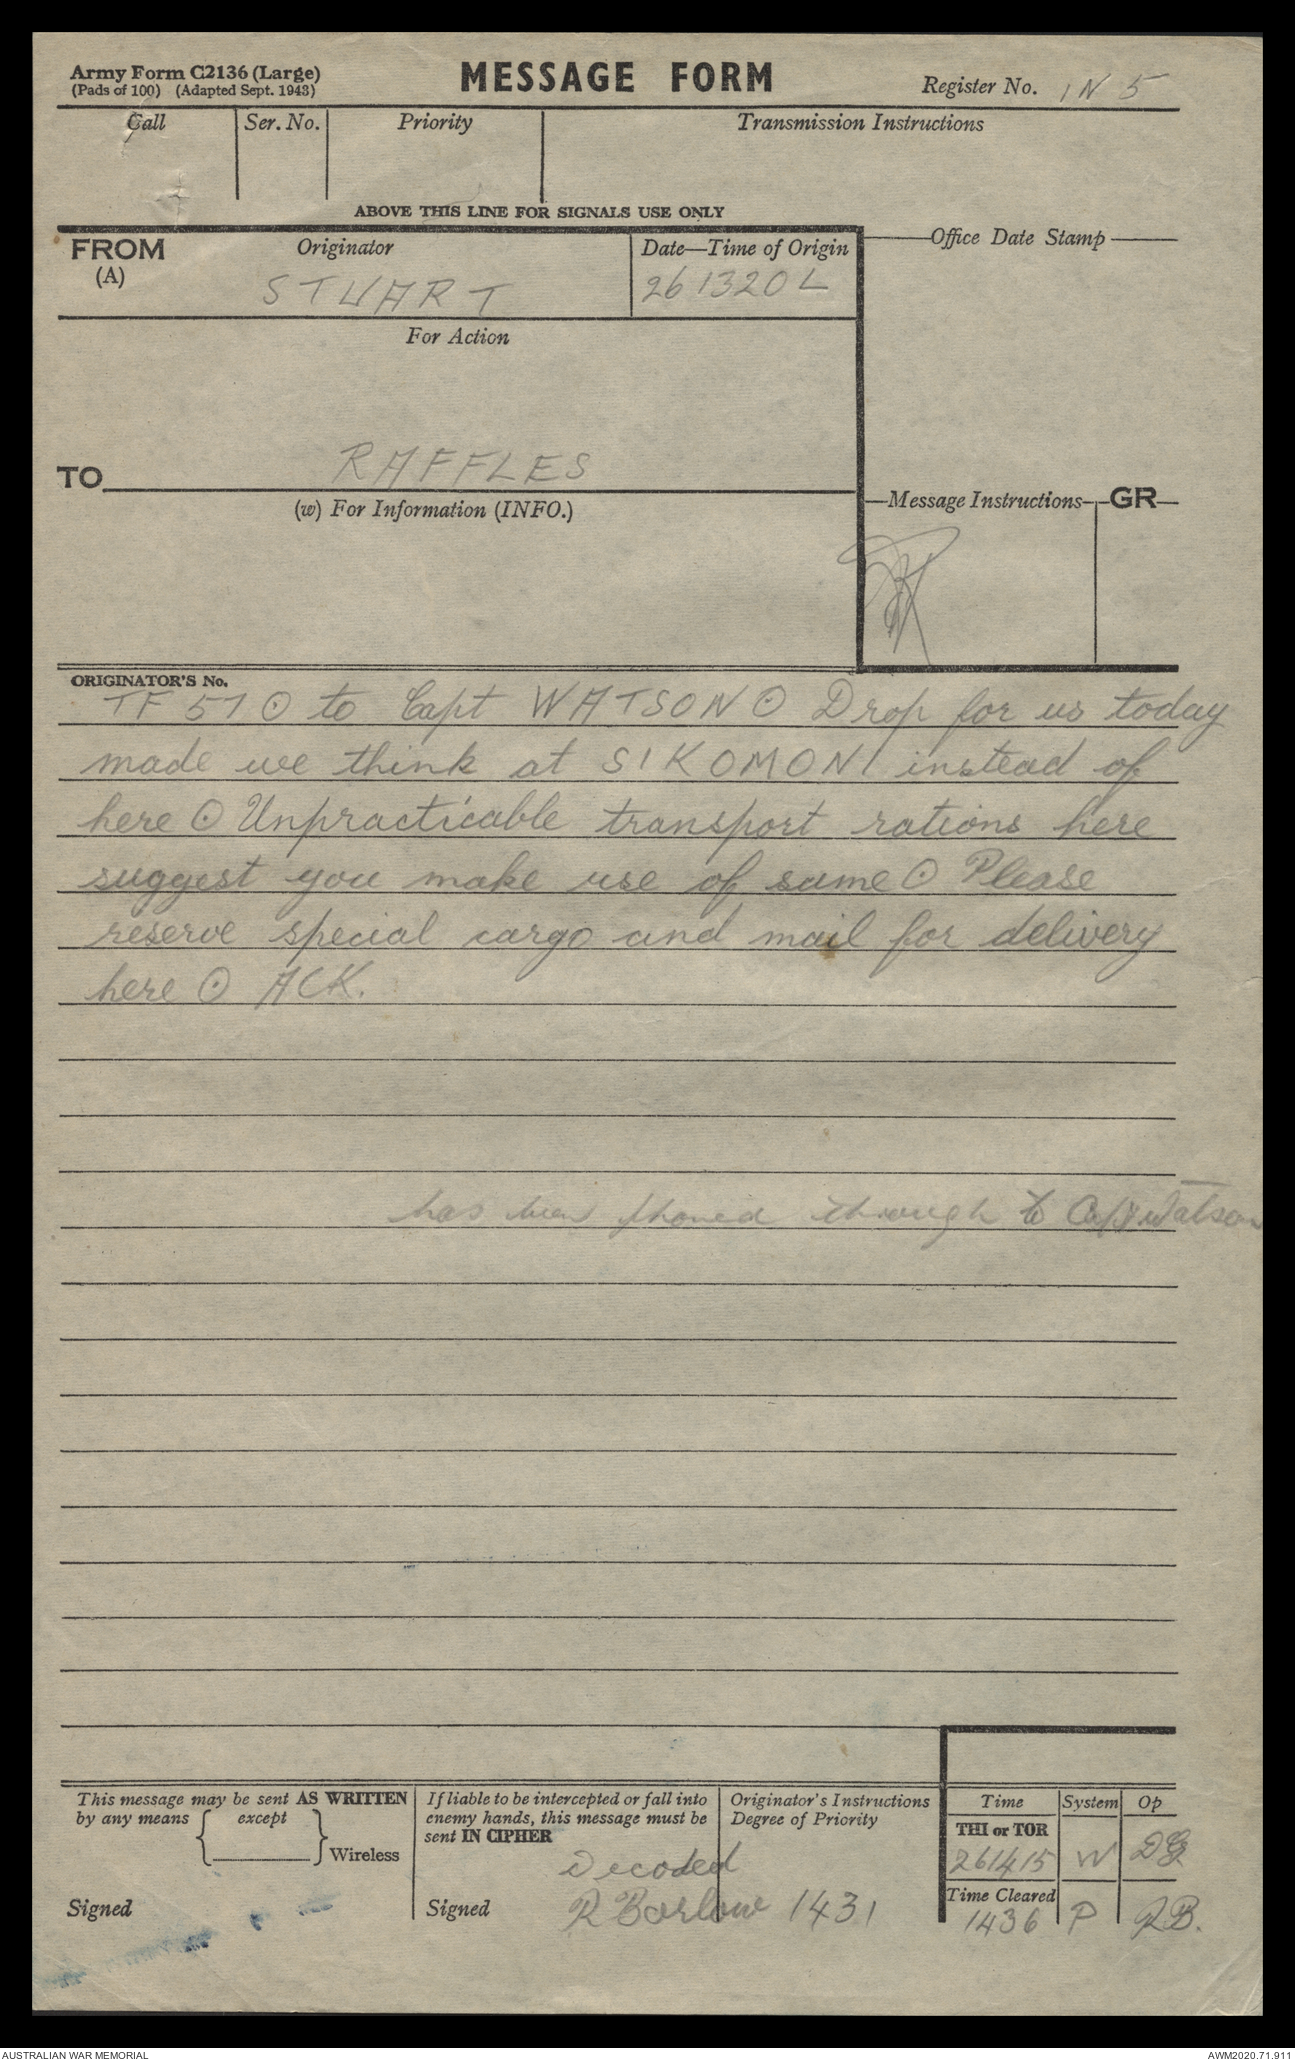 Army Form C2136 (Large)
(Pads of 100) (Adapted Sept. 1943)
MESSAGE FORM
Register No. IN 5
Call
Ser. No.
Priority
Transmission Instructions
ABOVE THIS LINE FOR SIGNALS USE ONLY
FROM
(A)
Originator
STUART
Date—Time of Origin
261320L
Office Date Stamp
For Action
TO RAFFLES
(w) For Information (INFO.)
Message Instructions
GR
ORIGINATOR'S No.
TF 57 ⊙ to Capt WATSON ⊙ Drop for us today
made we think at SIKOMONI instead of
here ⊙ Unpracticable transport rations here
suggest you make use of same ⊙ Please
reserve special cargo and mail for delivery
here ⊙ ACK.
has been phoned through to Capt Watson
This message may be sent AS WRITTEN
by any means { except } Wireless
Signed
If liable to be intercepted or fall into
enemy hands, this message must be
sent IN CIPHER
Decoded
Signed R Barlow 1431
Originator's Instructions
Degree of Priority
Time System Op
THI or TOR
261415 W DG
Time Cleared
1436 P RB.
AUSTRALIAN WAR MEMORIAL
AWM2020.71.911